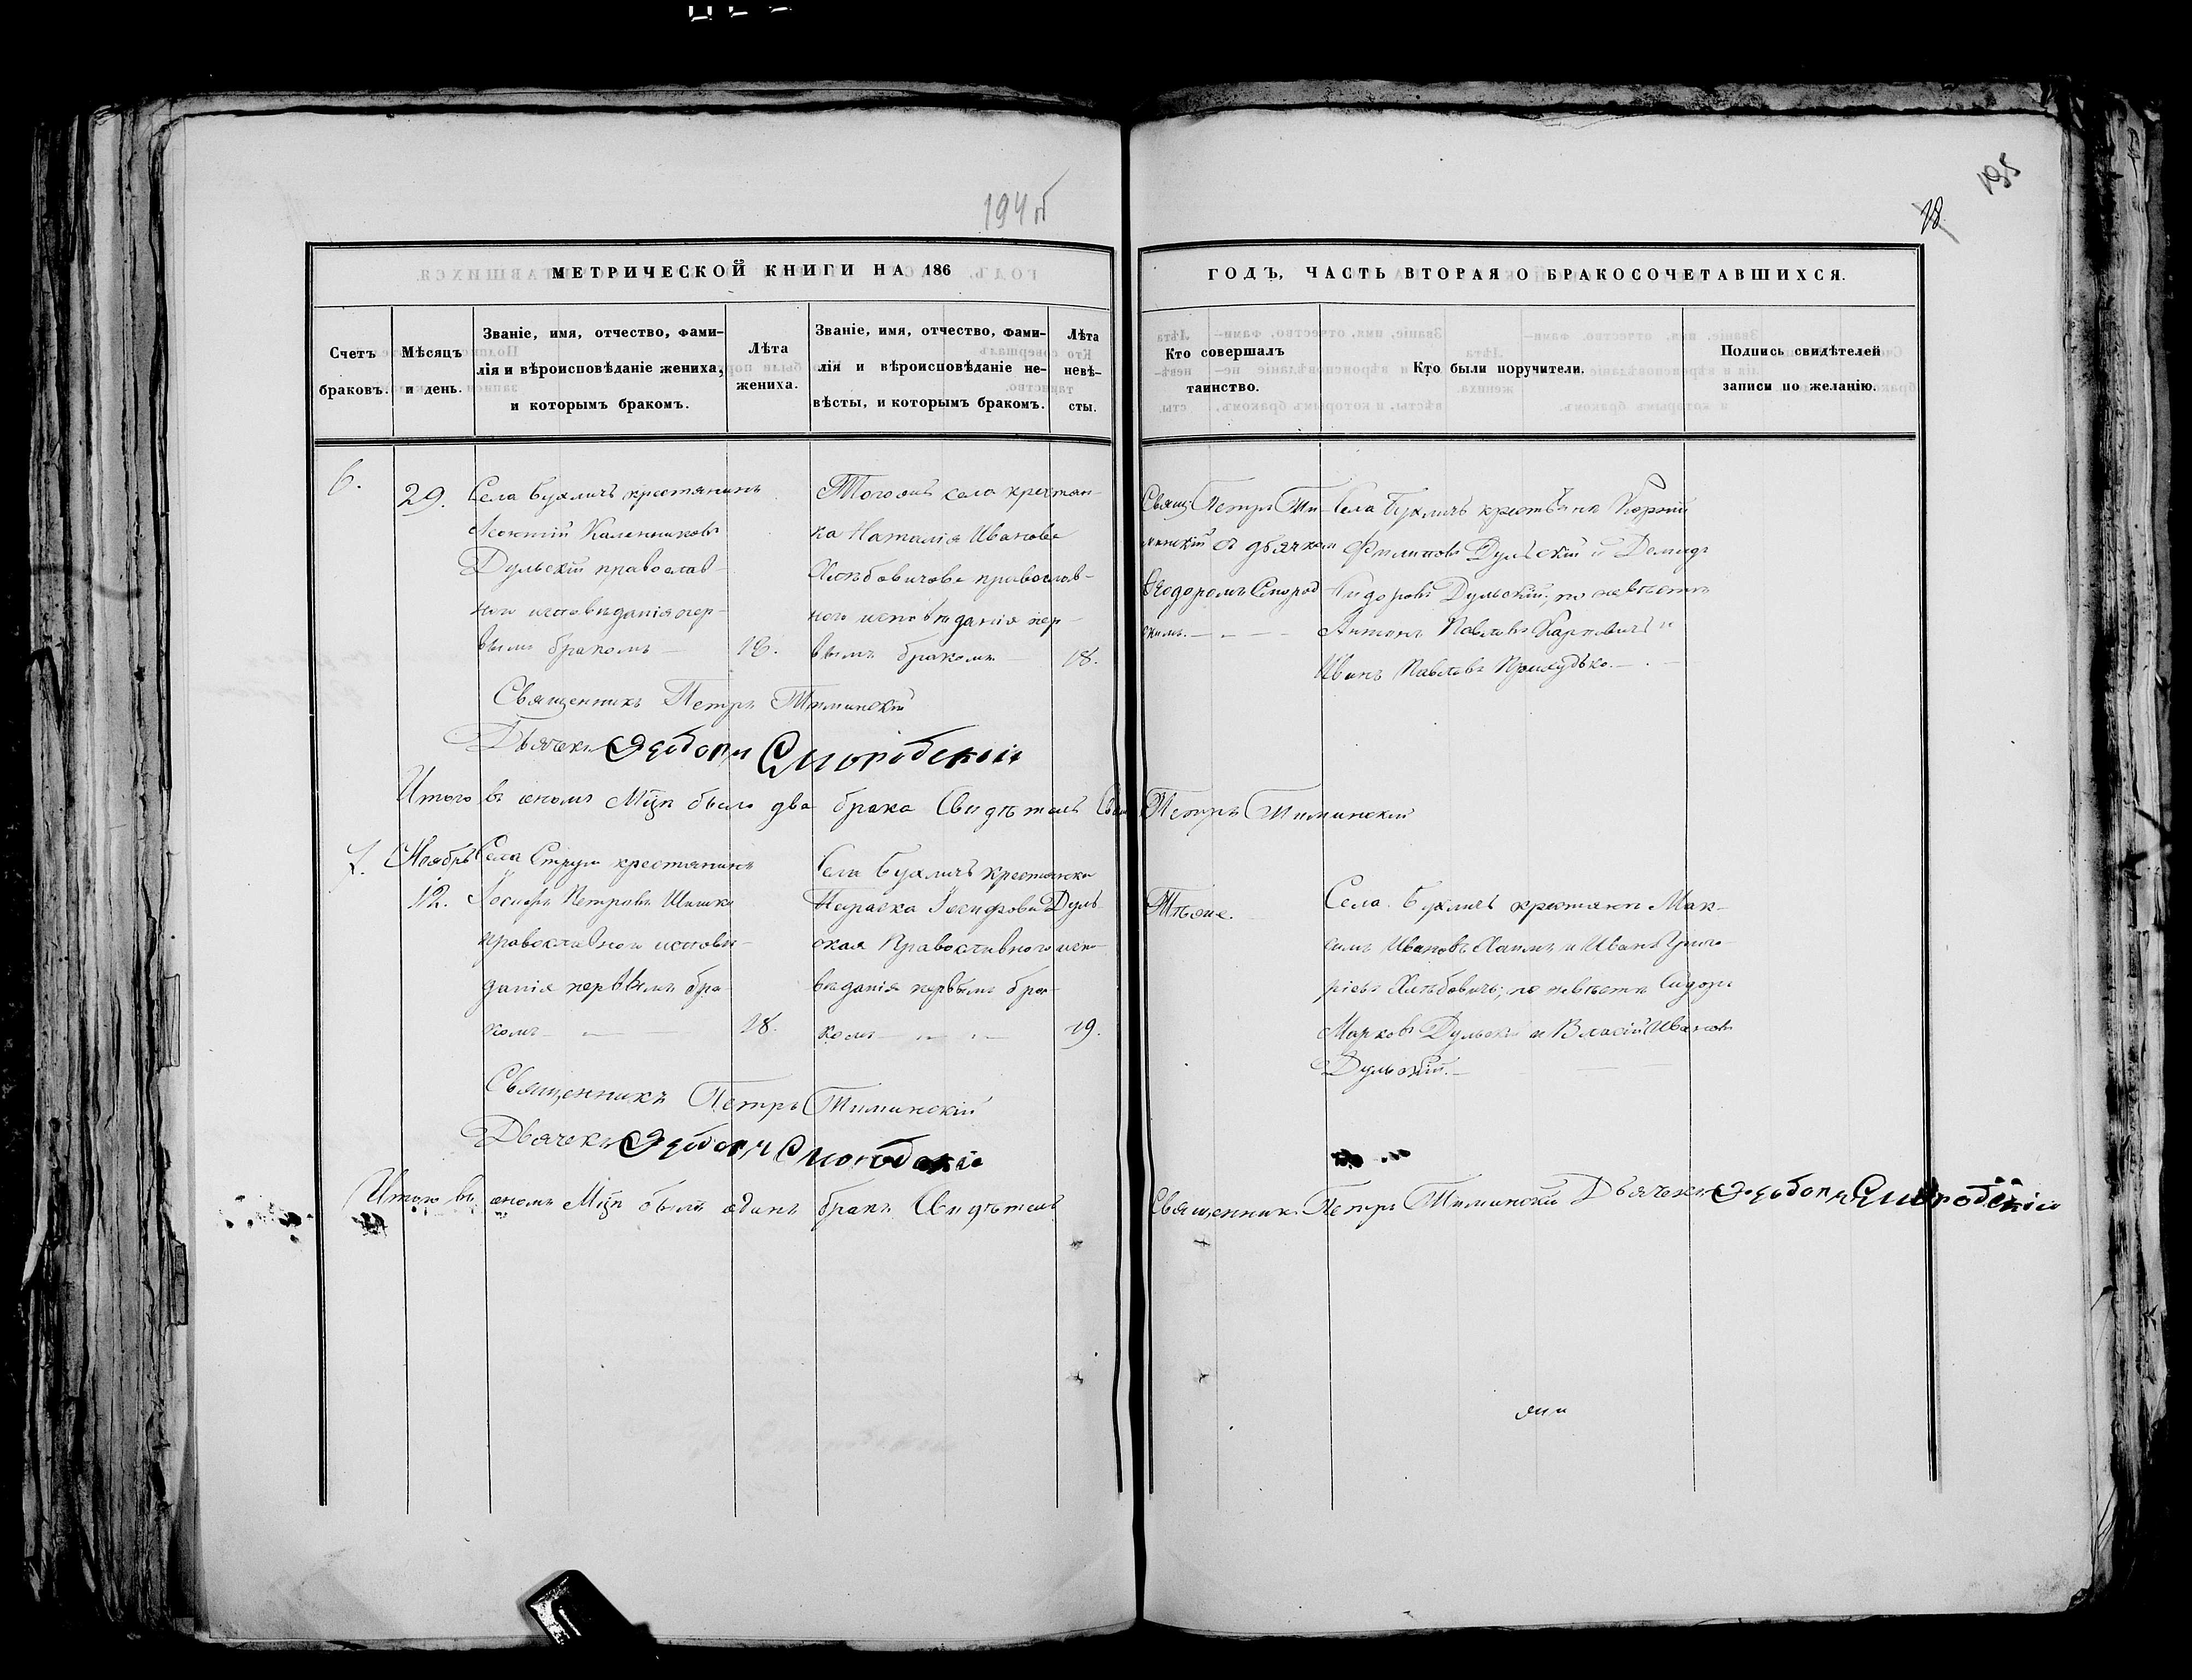 194 об
195
18
МЕТРИЧЕСКОЙ КНИГИ НА 186
ГОДЪ, ЧАСТЬ ВТОРАЯ О БРАКОСОЧЕТАВШИХСЯ.
Счетъ браковъ.
Мѣсяцъ и день.
Званіе, имя, отчество, фами-
лія и вѣроисповѣданіе жениха,
и которымъ бракомъ.
Лѣта
жениха.
Званіе, имя, отчество, фами-
лія и вѣроисповѣданіе не-
вѣсты, и которымъ бракомъ.
Лѣта
невѣ-
сты.
Кто совершалъ
таинство.
Кто были поручители.
Подпись свидѣтелей
записи по желанію.
6.
29.
Села Бухличъ крестянинъ
Леонтій Каленниковъ
Дульскій православ-
ного исповѣданія пер-
вымъ бракомъ
18.
Тогожъ села крестян-
ка Наталія Иванова
Хлѣбовичова православ-
ного исповѣданія пер-
вымъ бракомъ
18.
Свящ Петръ Ти-
минскій съ дьячком
Ѳеодоромъ Смород
скимъ.
Села Бухличъ крестьяне
Филиповъ Дульскій и Демидъ
Сидоровъ Дульскій; по невѣстѣ
Антонъ Павловъ Карповичъ и
Иванъ Павловъ Прилудько.
Священникъ Петръ Тиминскій
Дьячекъ Ѳеодоръ Смородскій
Итого въ ономъ Мцѣ было два брака Свидѣтель Свящ Петръ Тиминскій
7.
Ноябрь
12.
Села Струги крестянинъ
Іосифъ Петровъ Шишко
православного исповѣ-
данія первымъ бра-
комъ
18.
Села Бухличъ крестянка
Параска Іосифова Дуль-
ская Православного испо-
вѣданія первымъ бра-
комъ
19.
Тѣже.
Села Бухличъ крестяне Мак-
симъ Ивановъ и Иванъ Григо-
ріевъ Хлѣбовичъ; по невѣстѣ Сидоръ
Марковъ Дульскі и Власій Ивановъ
Дульскій.
Священникъ Петръ Тиминскій
Дьячекъ Ѳеодоръ Смородскій
Итого въ ономъ Мцѣ былъ одинъ бракъ Свидѣтель Священник Петръ Тиминскій Дьячекъ Ѳеодоръ Смородскій